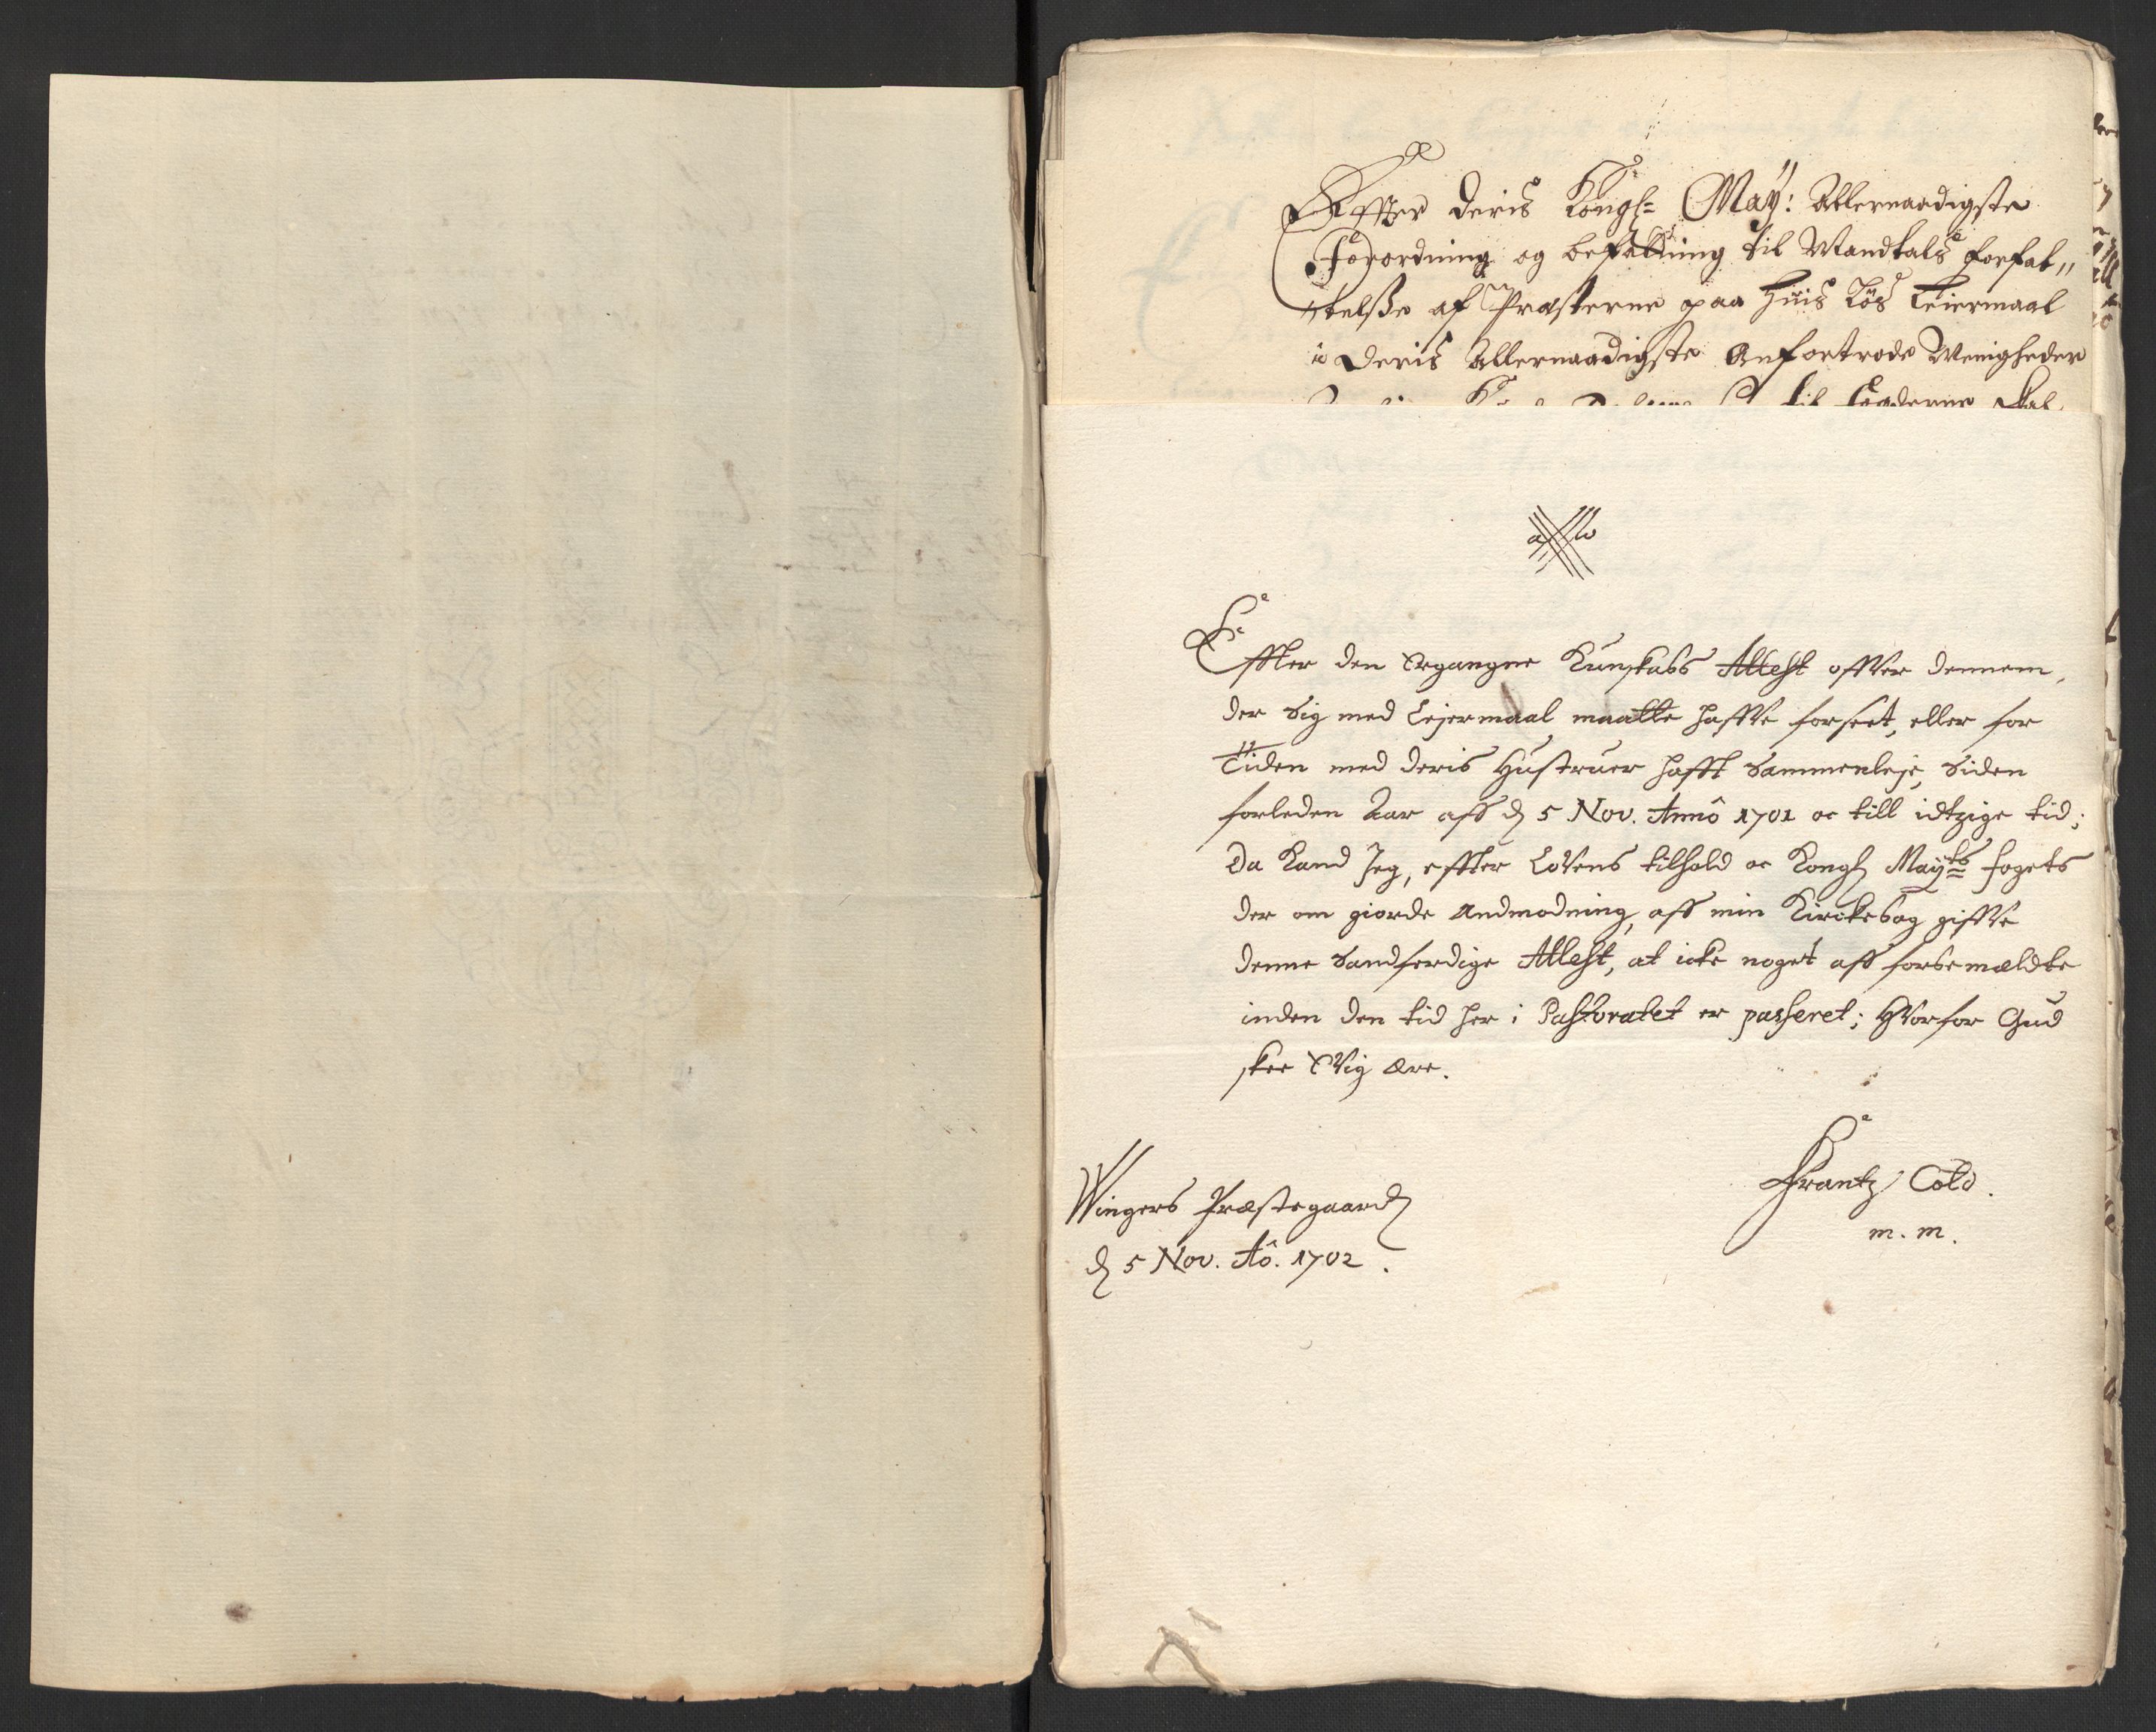 Effter Deris Kongl: May: Allernaadigste
Forordning og befalning til Mandtals forfat„
„telsse af Præsterne paa Huus Løs Leiermaal
i Deris Allernaadigste Anfortrode Menigheder
til fogderne skal
a w
Effter den Ergangne Kundskabs Attest offver dennem,
der Sig med Lejermaal maatte haffve forseet, eller for
Tiiden med deris Hustruer hafft Sammenleje, Siden
forleden Aar aff d 5 Nov. Annô 1701 oc till idtzige tid;
Da Kand Jeg, effter Lovens tilhold oc Kongl Mayts fogets
der om giorde Andmodning, aff min Kirckebog giffve
denne Sandferdige Attest, at icke noget aff forbemældte
inden den tid her i Pastoratet er passeret; Hvorfor Gud
skee Evig ære.
Wingers Præstegaard
d 5 Nov. Aô. 1702.
Frantz Cold.
m. m.